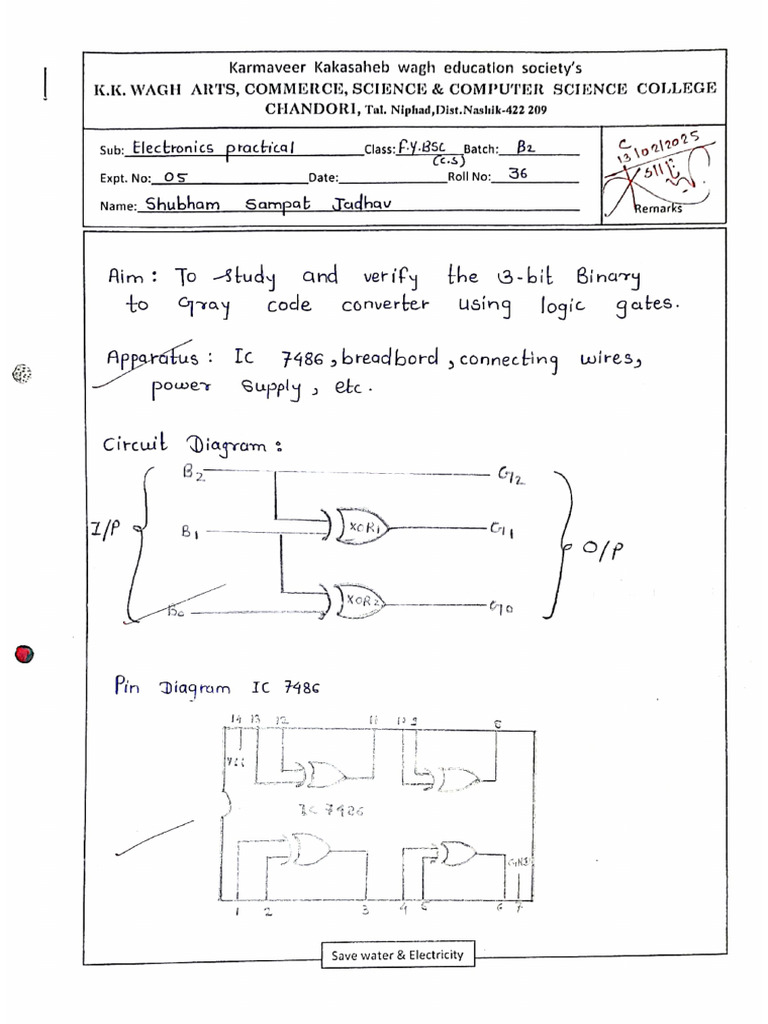 Karmaveer Kakasaheb wagh education society's
K.K. WAGH ARTS, COMMERCE, SCIENCE & COMPUTER SCIENCE COLLEGE
CHANDORI, Tal. Niphad,Dist.Nashik-422 209
Sub: Electronics practical Class: F.Y.BSC (C.S) Batch: B2
Expt. No: 05 Date: Roll No: 36
Name: Shubham Sampat Jadhav
C
13/02/2025
Remarks
Aim : To study and verify the 3-bit Binary
to Gray code converter using logic gates.
Apparatus : IC 7486, breadbord, connecting wires,
power supply, etc.
Circuit Diagram :
B2 G2
I/P B1 XOR1 G1 O/P
B0 XOR2 G0
Pin Diagram IC 7486
14 13 12 11 10 9 8
VCC
IC 7486
GND
1 2 3 4 5 6 7
Save water & Electricity